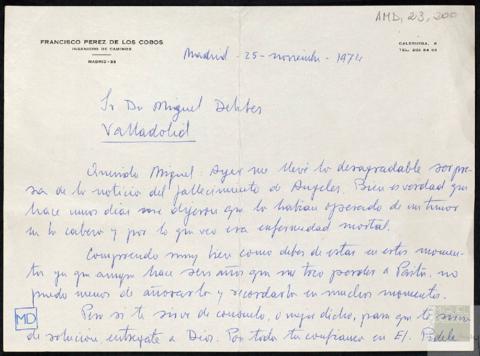 AMD, 23, 200
FRANCISCO PEREZ DE LOS COBOS
INGENIERO DE CAMINOS
MADRID-33
CALERUEGA, 8
Madrid - 25 - noviembre - 1974
Sr Dn Miguel Delibes
Valladolid
Querido Miguel: Ayer me llevé la desagradable sorpre
sa de la noticia del fallecimiento de Angeles. Bien es verdad que
hace unos días me dijeron que la habían operado de un tumor
en la cabeza y por lo que veo era enfermedad mortal.
Comprendo muy bien como debes de estar en estos momen-
tos ya que aunque hace seis años que me toco perder a no
puedo menos de añorarla y recordarla en muchos momentos.
Pero si te sirve de consuelo, o mejor dicho, para que te sirva
de solución entregate a Dios. Pon toda tu confianza en El. Pidele
MD